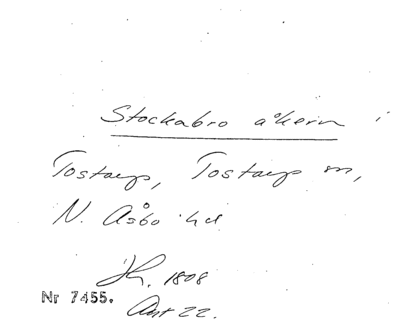 Stockabro åkern i
Tostarp, Tostarp m,
N. Åsbo hd
Jh. 1808
Nr 7455.
Akt 22.